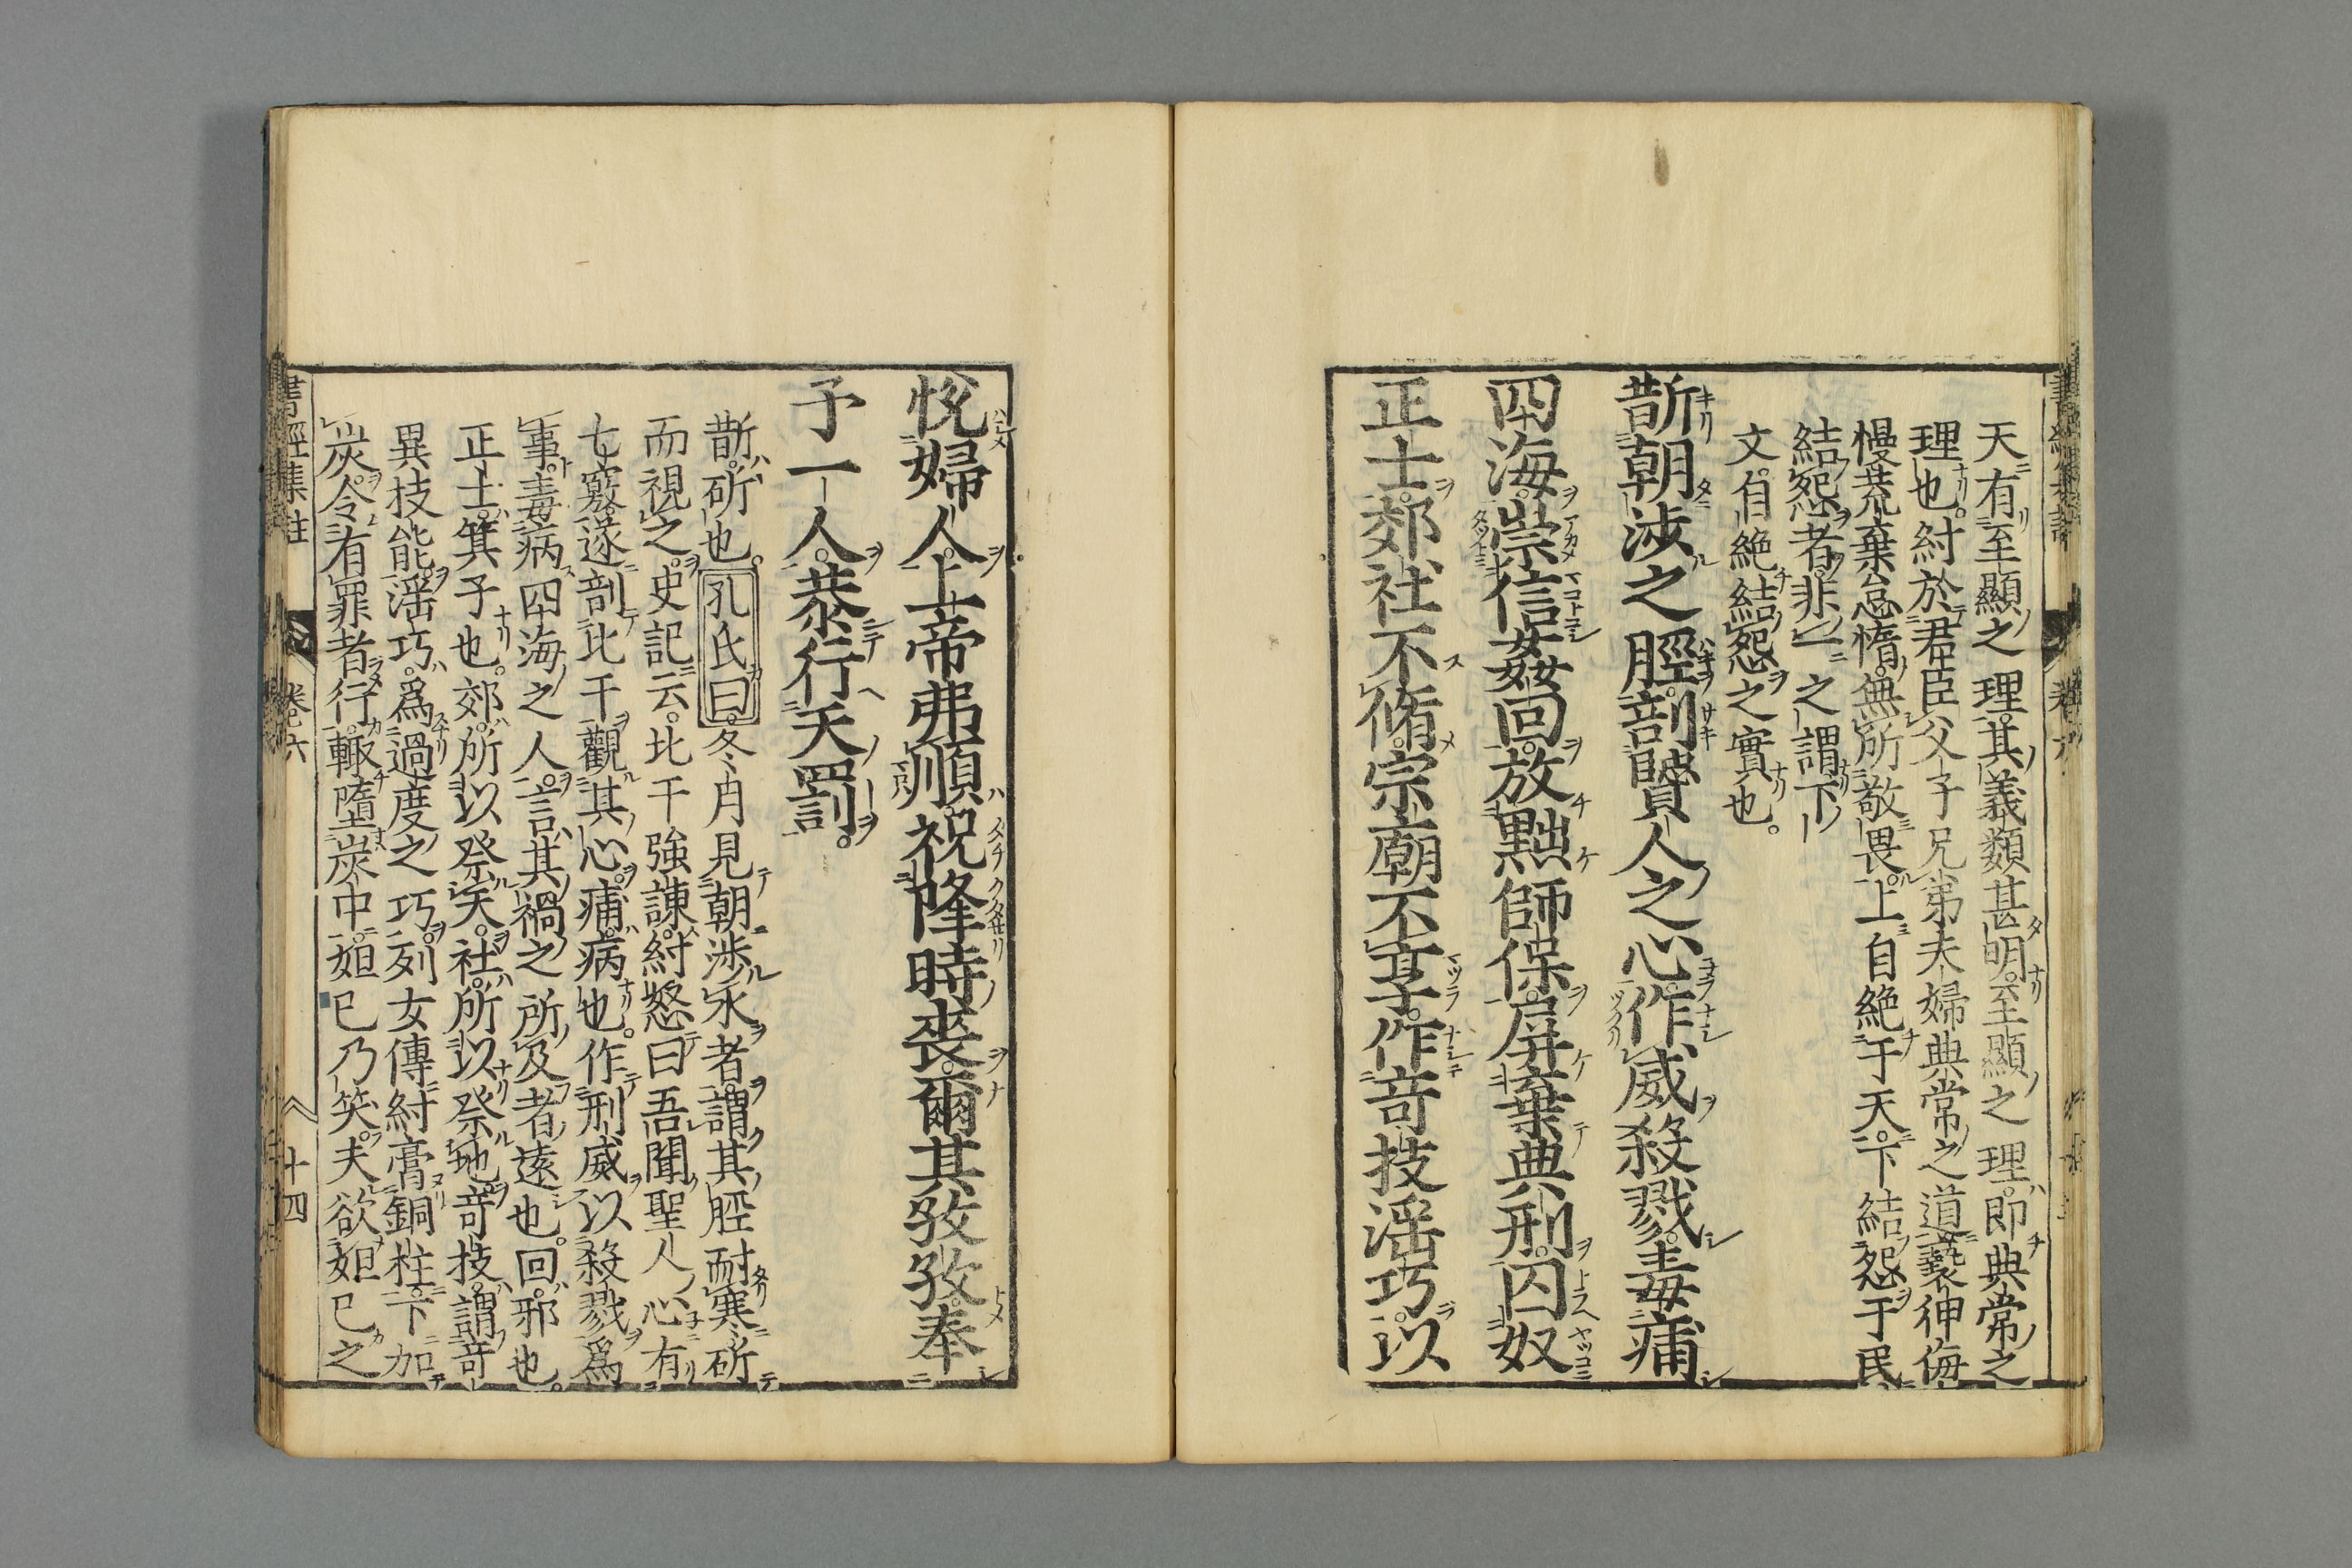 天有至顯之理其義類甚明至顯之理即典常之
理也紂於君臣父子兄弟夫婦典常之道褻狎侮
慢荒棄怠惰無所敬畏上自絶于天下結怨于民
結怨者非一之謂下
文自絶結怨之實也
斮朝涉之脛剖賢人之心作威殺戮毒痡
四海崇信姦回放黜師保屏棄典刑囚奴
正士郊社不脩宗廟不享作竒技滛巧以
悅婦人上帝弗順祝降時喪爾其孜孜奉
予一人恭行天罰
斮斫也孔氏曰冬月見朝渉水者謂其脛耐寒斫
而視之史記云比干強諫紂怒曰吾聞聖人心有
七竅遂剖比干觀其心痡病也作刑威以殺戮爲
事毒病四海之人言其禍之所及者遠也回邪也
正士箕子也郊所以祭天社所以祭地竒技謂竒
異技能滛巧爲過度之巧列女傳紂膏銅柱下加
炭令有罪者行輙墮炭中妲已乃笑夫欲妲已之
書經集註 卷六 十四